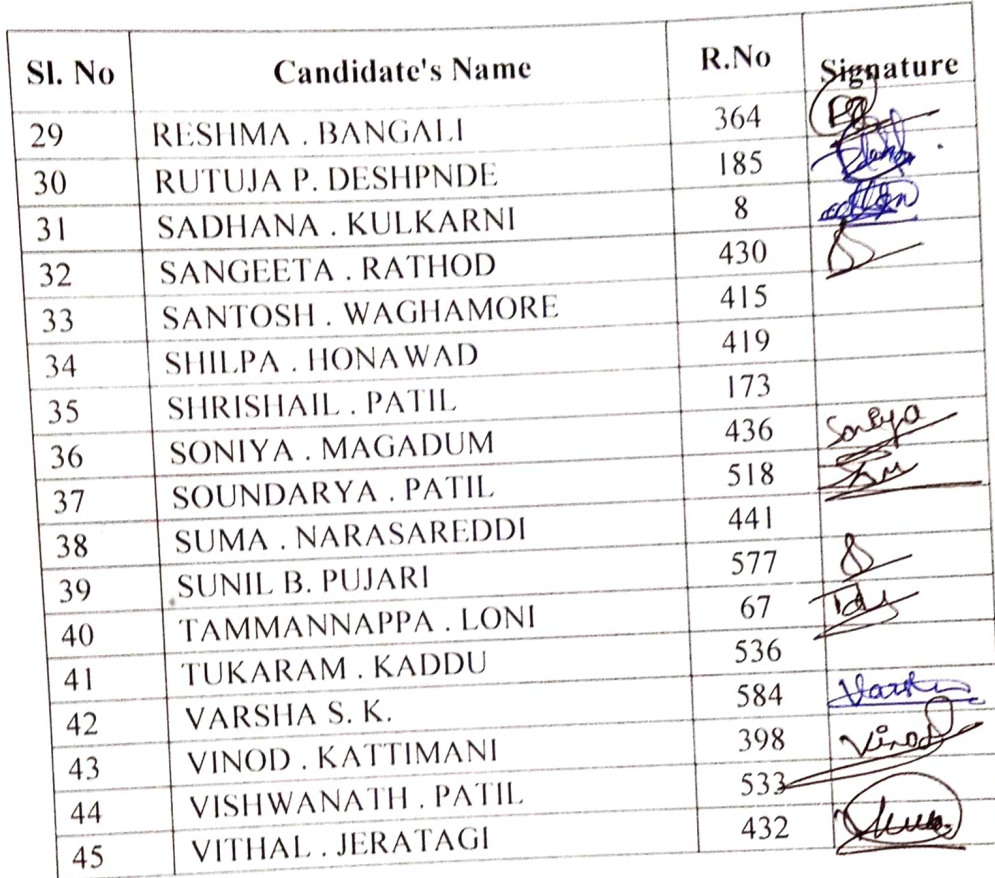 Sl. No Candidate's Name R.No Signature
29 RESHMA . BANGALI 364
30 RUTUJA P. DESHPNDE 185
31 SADHANA . KULKARNI 8
32 SANGEETA . RATHOD 430
33 SANTOSH . WAGHAMORE 415
34 SHILPA . HONAWAD 419
35 SHRISHAIL . PATIL 173
36 SONIYA . MAGADUM 436 Soniya
37 SOUNDARYA . PATIL 518
38 SUMA . NARASAREDDI 441
39 SUNIL B. PUJARI 577
40 TAMMANNAPPA . LONI 67
41 TUKARAM . KADDU 536
42 VARSHA S. K. 584
43 VINOD . KATTIMANI 398 Vinod
44 VISHWANATH . PATIL 533
45 VITHAL . JERATAGI 432